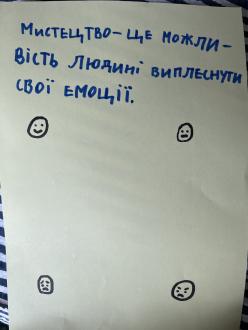 Мистецтво - це можли -
вість людині виплеснути
свої емоції.